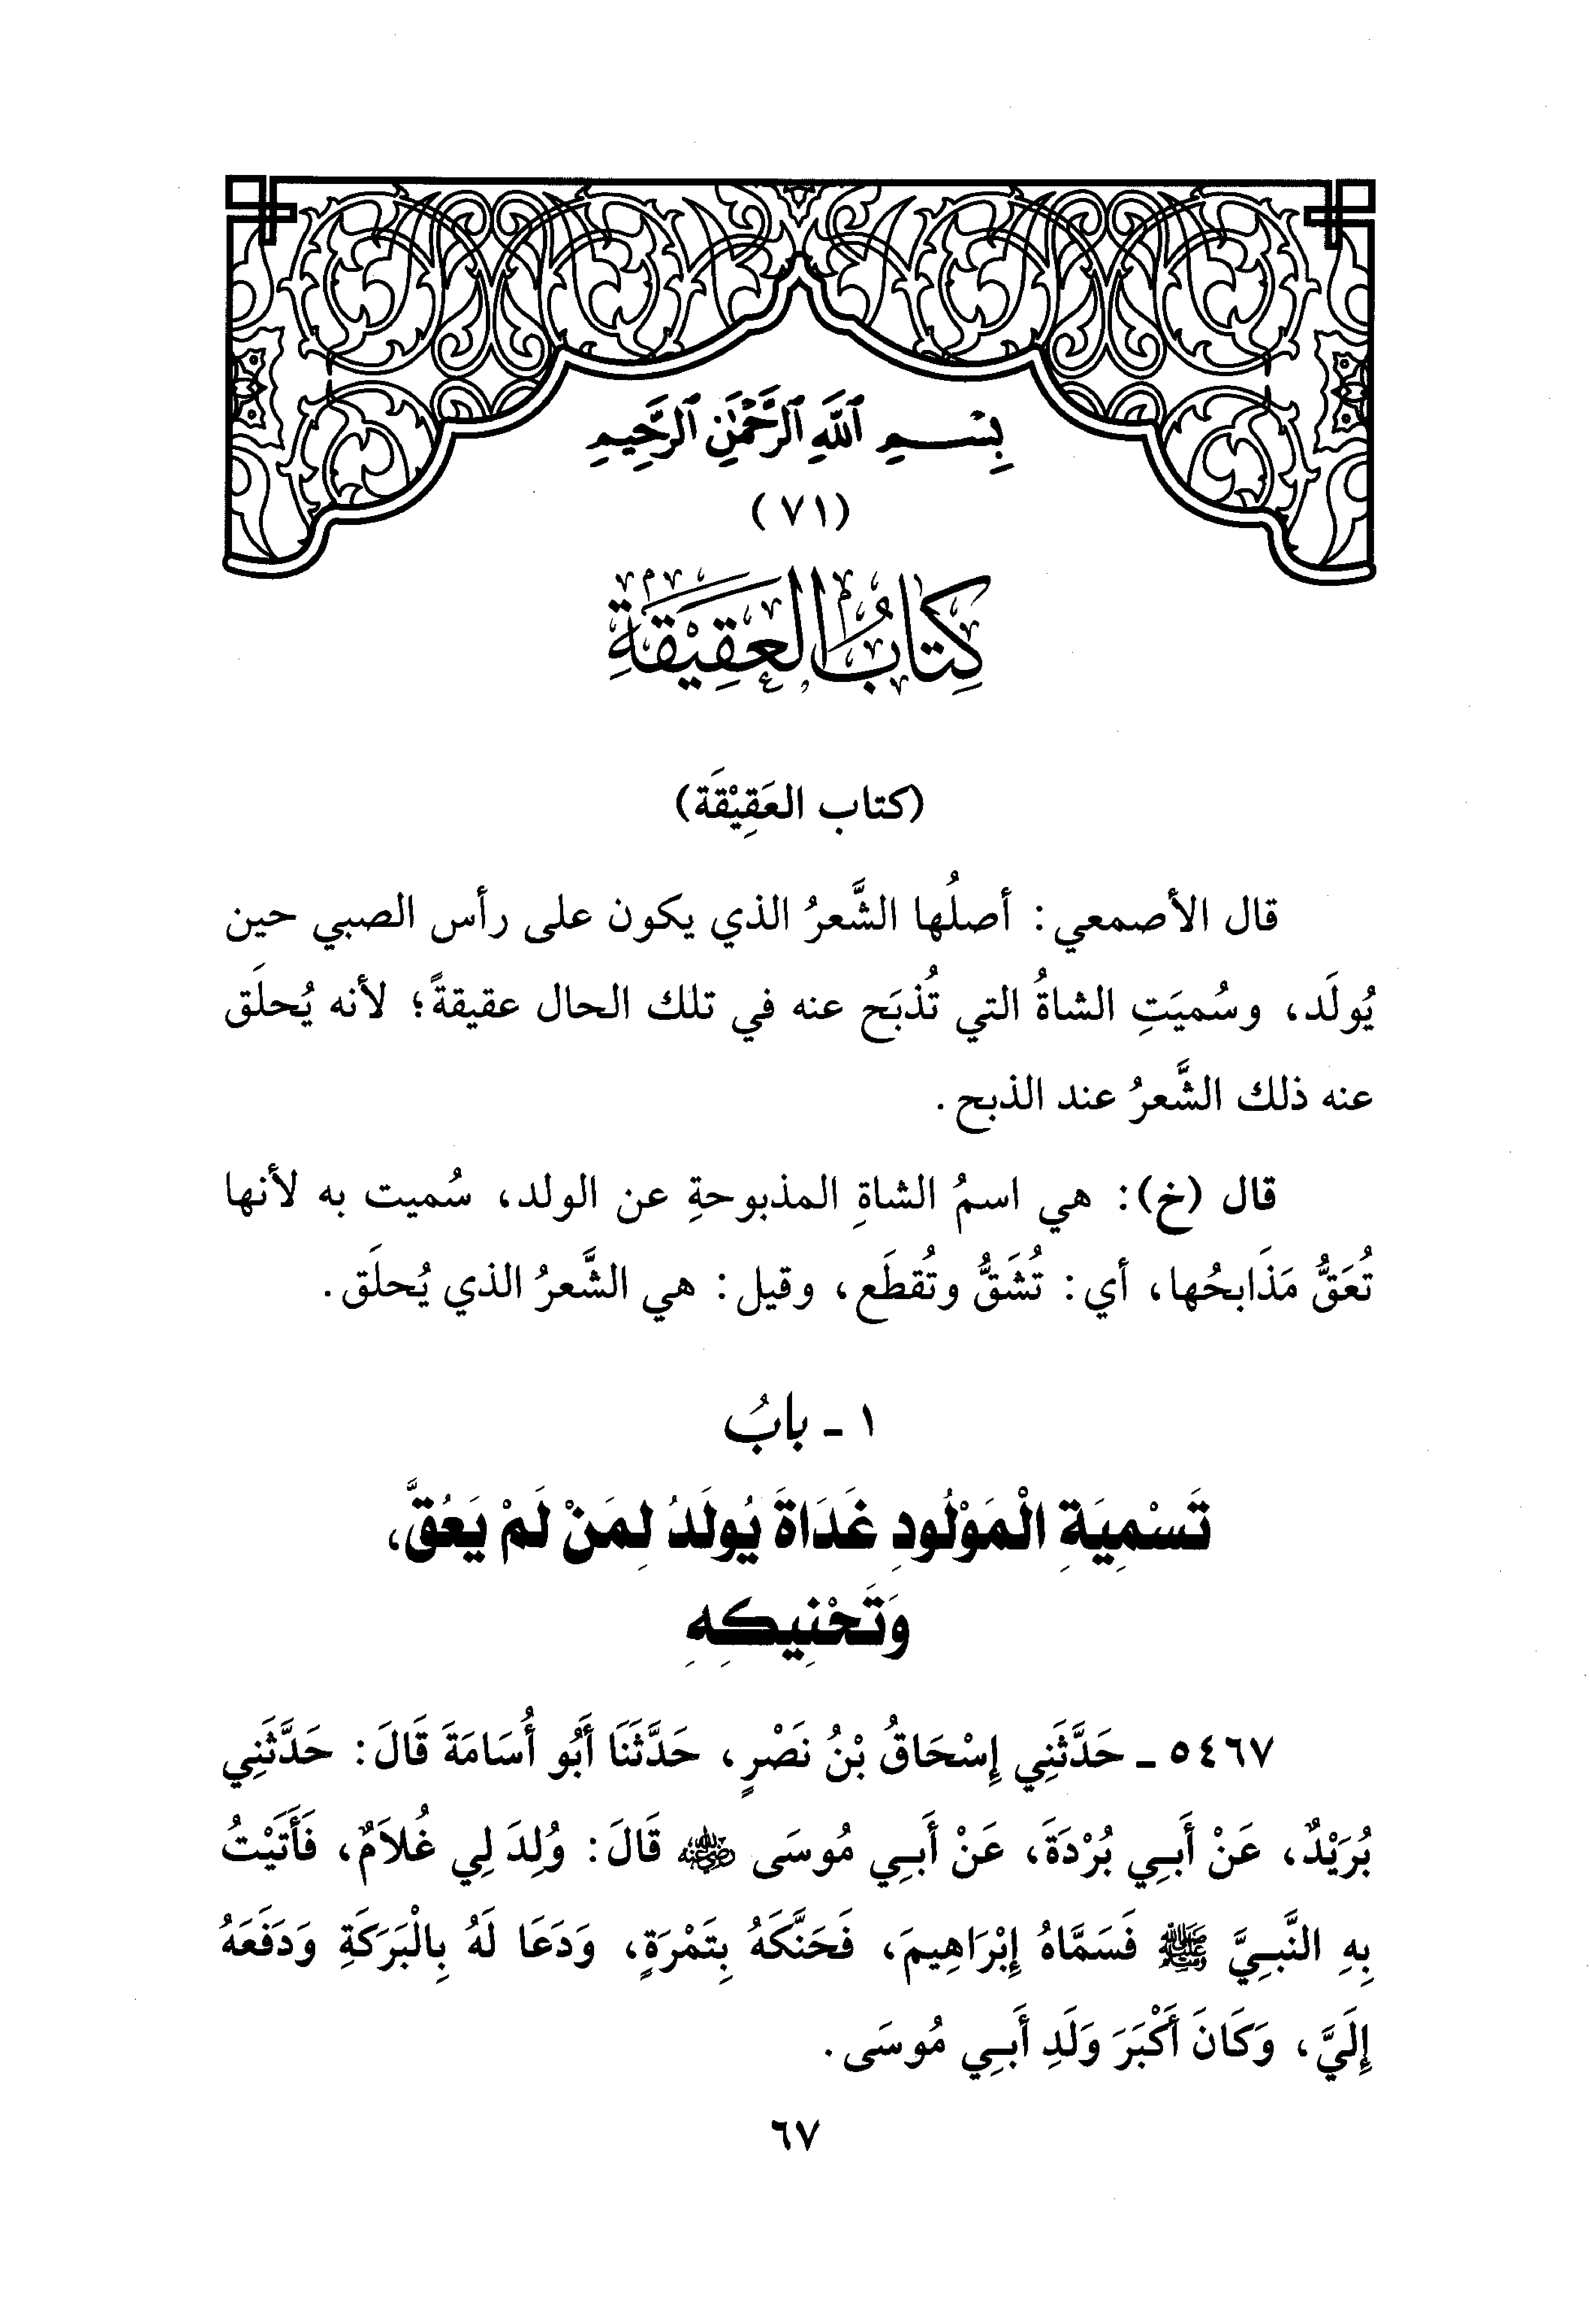 بِسْمِ ٱللَّهِ ٱلرَّحْمَٰنِ ٱلرَّحِيمِ
(٧١)
كِتَابُ الْعَقِيْقَةِ
(كتاب العَقِيْقَة)
قال الأصمعي: أصلُها الشَّعرُ الذي يكون على رأس الصبي حين
يُولَد، وسُميَتِ الشاةُ التي تُذبَح عنه في تلك الحال عقيقةً؛ لأنه يُحلَق
عنه ذلك الشَّعرُ عند الذبح.
قال (خ): هي اسمُ الشاةِ المذبوحةِ عن الولد، سُميت به لأنها
تُعَقُّ مَذَابحُها، أي: تُشَقُّ وتُقطَع، وقيل: هي الشَّعرُ الذي يُحلَق.
١ ـ بابُ
تَسْمِيَةِ الْمَوْلُودِ غَدَاةَ يُولَدُ لِمَنْ لَمْ يَعُقَّ،
وَتَحْنِيكِهِ
٥٤٦٧ ـ حَدَّثَنِي إِسْحَاقُ بْنُ نَصْرٍ، حَدَّثَنَا أَبُو أُسَامَةَ قَالَ: حَدَّثَنِي
بُرَيْدٌ، عَنْ أَبِي بُرْدَةَ، عَنْ أَبِي مُوسَى رضي الله عنه قَالَ: وُلِدَ لِي غُلاَمٌ، فَأَتَيْتُ
بِهِ النَّبِيَّ ﷺ فَسَمَّاهُ إِبْرَاهِيمَ، فَحَنَّكَهُ بِتَمْرَةٍ، وَدَعَا لَهُ بِالْبَرَكَةِ وَدَفَعَهُ
إِلَيَّ، وَكَانَ أَكْبَرَ وَلَدِ أَبِي مُوسَى.
٦٧